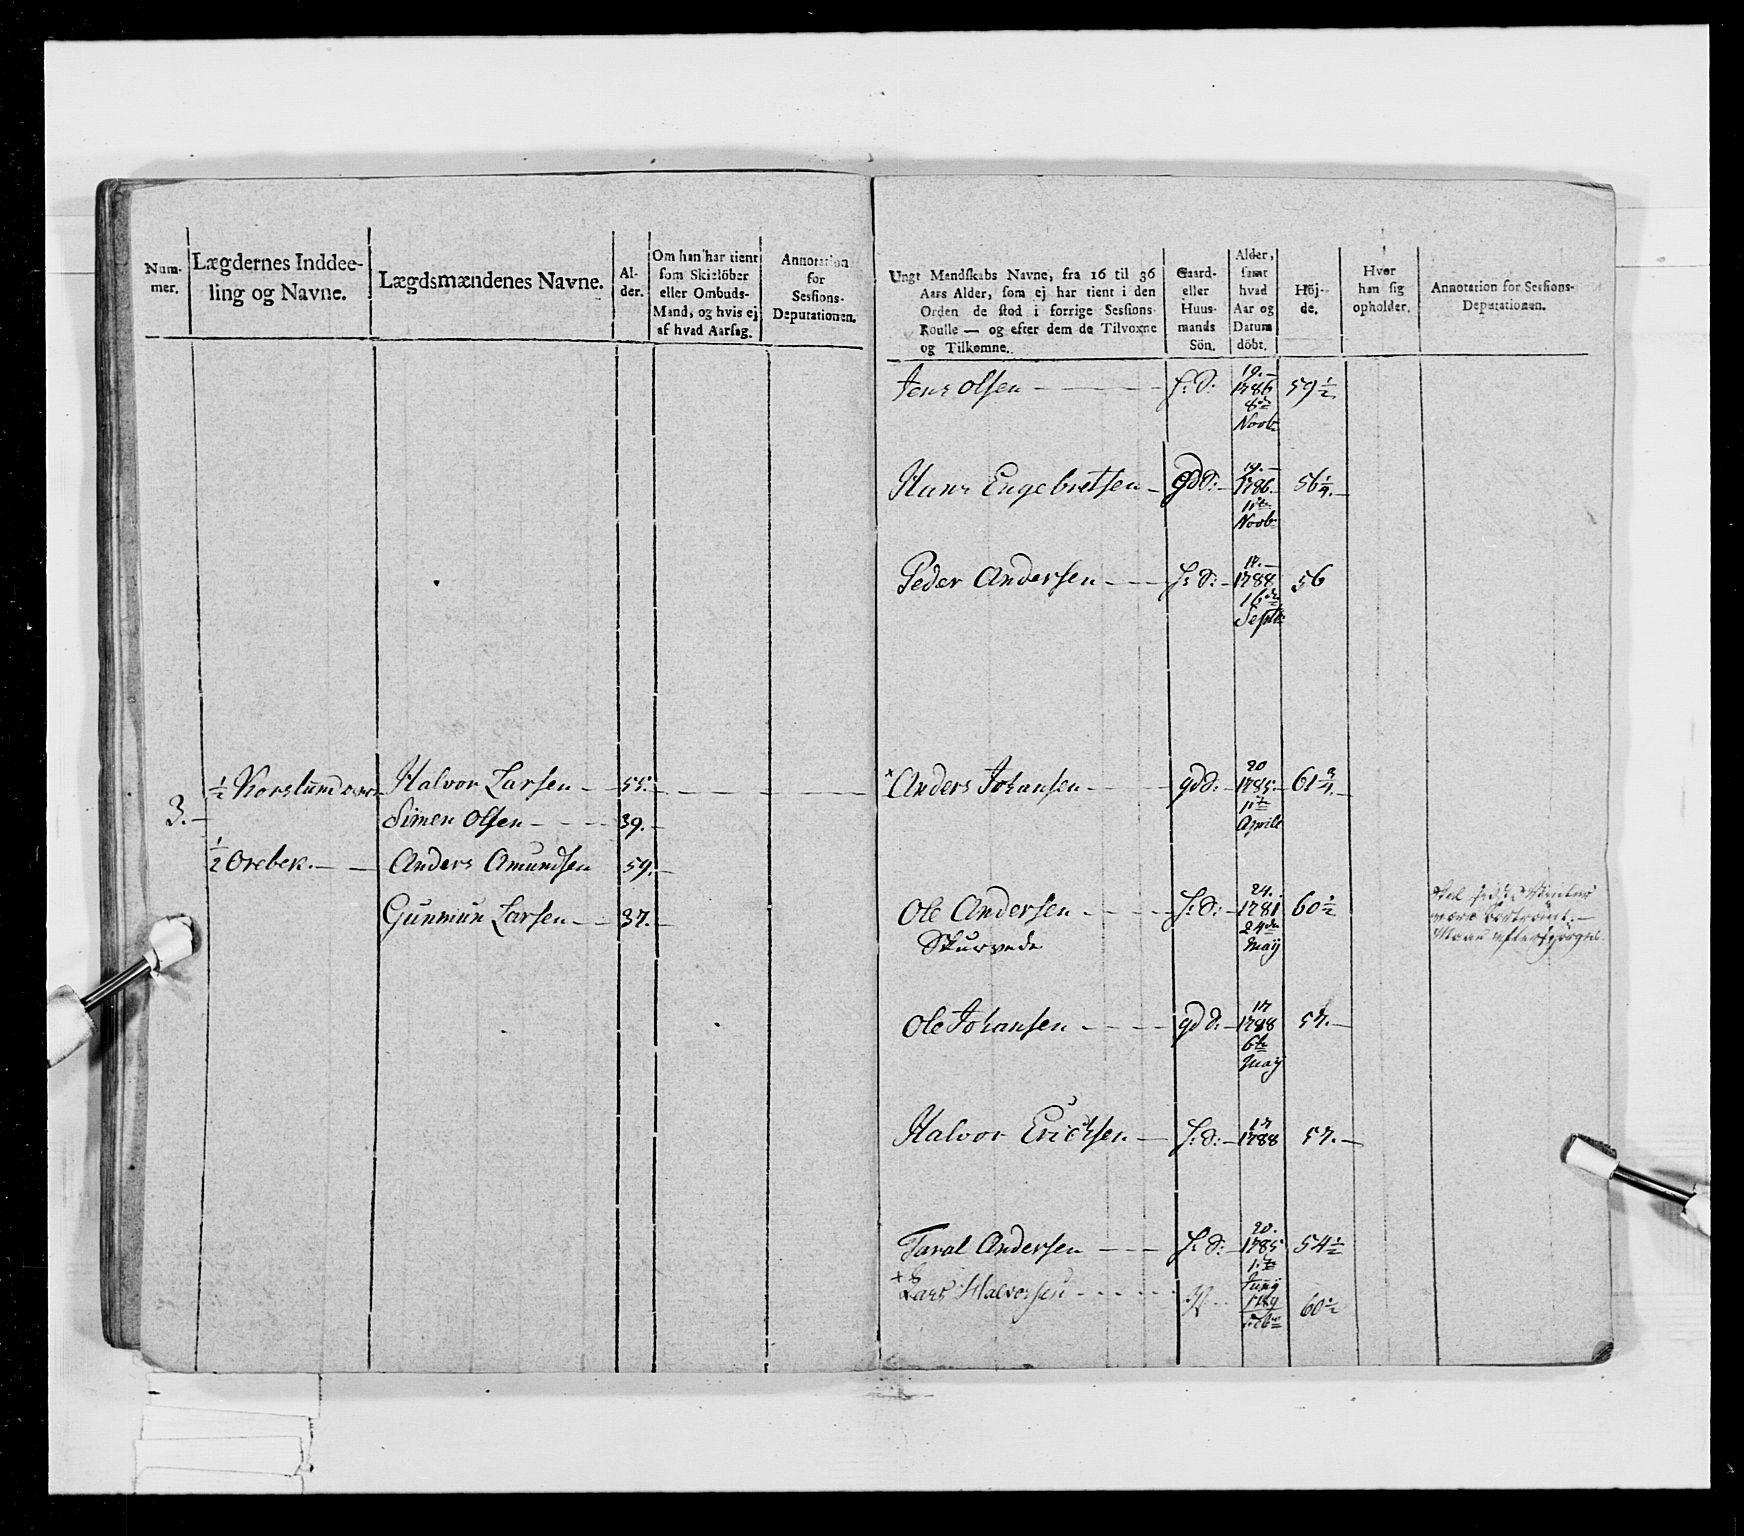 Num-
mer.
Lægdernes Inddee-
ling og Navne.
Lægdsmændenes Navne.
Al-
der.
Om han har tient
som Skielöber
eller Ombuds-
Mand, og hvis ej
af hvad Aarsag.
Annotation
for
Sessions-
Deputationen.
3.
½ Korslund
Halvor Larsen 55.
Simen Olsen 39.
½ Orebek.
Anders Amundsen 59.
Gunmun Larsen 37.
Ungt Mandskabs Navne, fra 16 til 36
Aars Alder, som ej har tient i den
Orden de stod i forrige Sessions-
Roulle — og efter dem de Tilvoxne
og Tilkomne.
Gaard-
eller
Huus-
mands
Sön.
Alder,
samt
hvad
Aar og
Datum
döbt.
Höj-
de.
Hver
han sig
opholder.
Annotation for Sessions-
Deputationen.
19.
Jens Olsen h: S: 1786 59½
8de
Novbr
19.
Hans Engebretsen gd S: 1786. 56¼
11te
Novbr
17.
Peder Andersen h: S: 1788 56
16de
Septbr
20
× Anders Johansen gd S: 1785. 61¾
11te
Aprile
24.
Ole Andersen h: S: 1781 60½
Skurvede
24de
Maij
17
Ole Johansen gd S. 1788 57.
6te
Maij
17
Halvor Erichsen h: S: 1788 57.
20.
Taral Andersen h: S: 1785 54½
Junij
Lars Halvorsen 60½